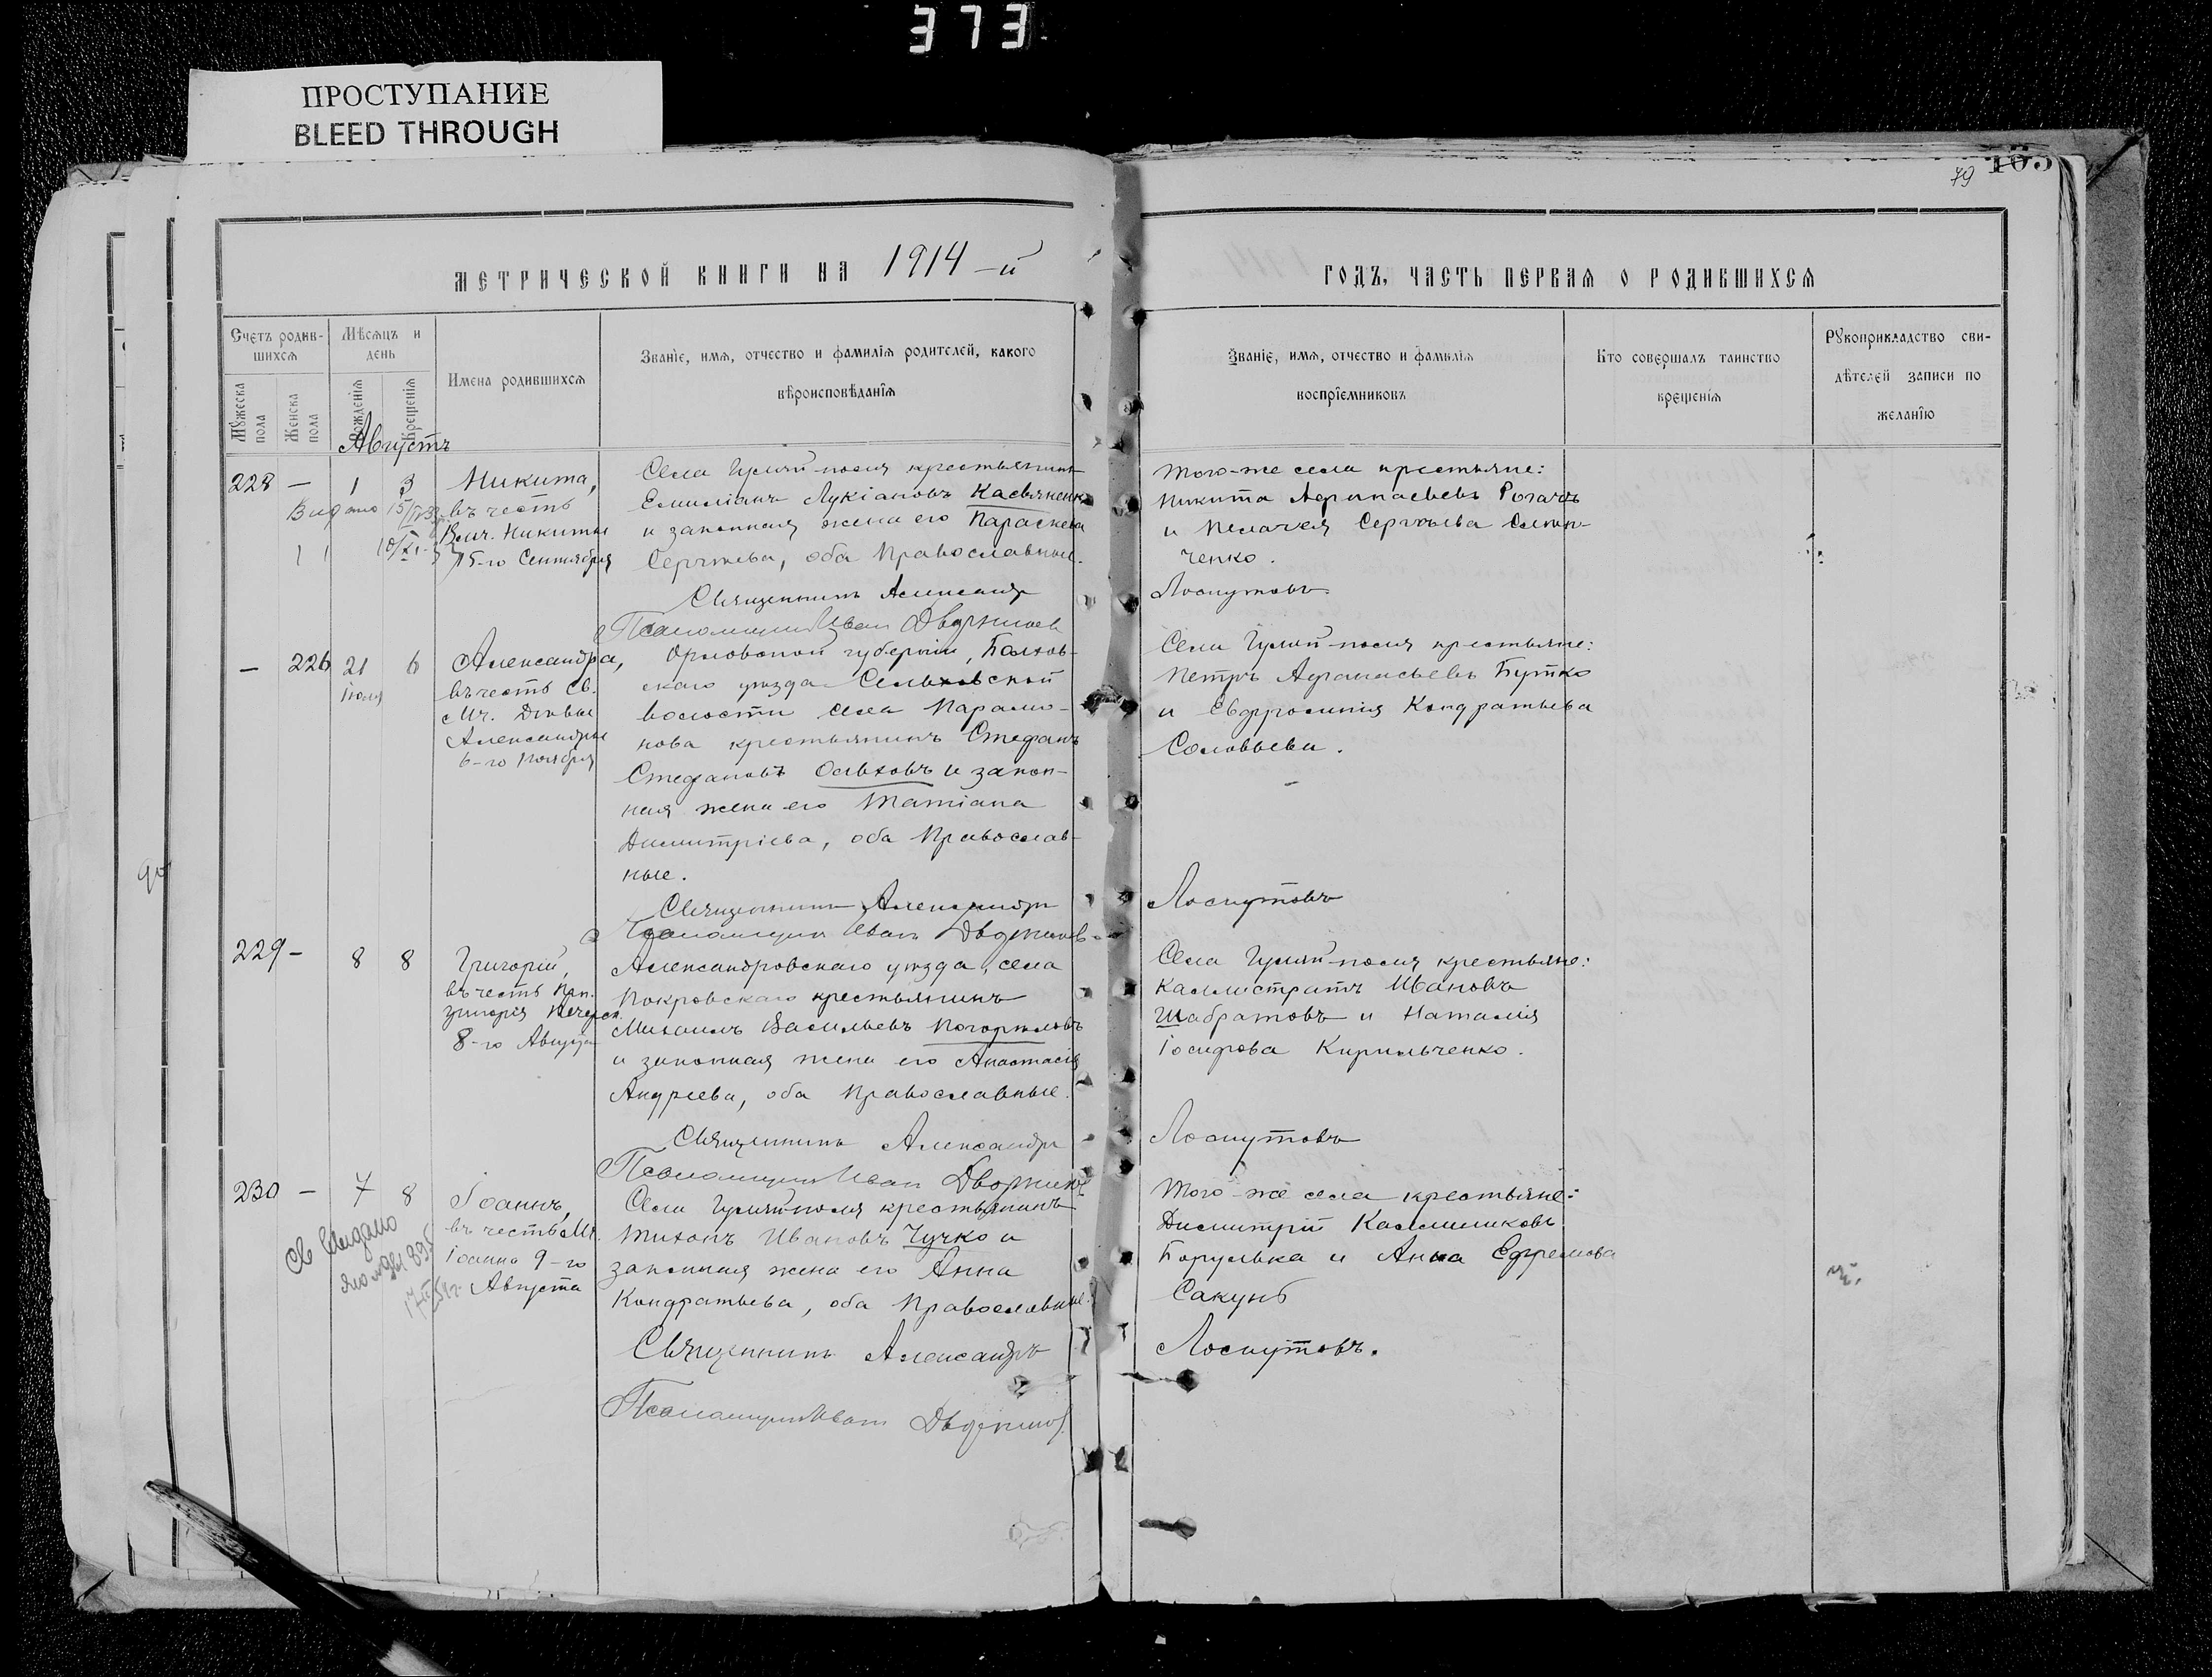 373
ПРОСТУПАНИЕ
BLEED THROUGH
79 165
МЕТРИЧЕСКОЙ КНИГИ НА 1914-й
ГОДЪ, ЧАСТЬ ПЕРВАЯ О РОДИВШИХСЯ
Счетъ родив-
шихся
Мѣсяцъ и
день
Мужеска пола
Женска пола
Рожденія
Крещенія
Имена родившихся
Званіе, имя, отчество и фамилія родителей, какого
вѣроисповѣданія
Званіе, имя, отчество и фамилія
воспріемниковъ
Кто совершалъ таинство
крещенія
Рукоприкладство сви-
дѣтелей записи по
желанію
Августъ
228 — 1 3
Никита,
въ честь
Вмч. Никиты
15-го Сентября
Видано 15/
Села Гуляй-поля крестьянинъ
Емиліанъ Лукіановъ Касьяненко
и законная жена его Параскева
Сергѣева, оба Православные.
Священникъ Александръ
Псаломщикъ Иван Дворников
Того-же села крестьяне:
Никита Афанасьевъ Рогачъ
и Пелагея Сергѣева Симон-
ченко.
Лоскутовъ.
— 226 21 6
Іюля
Александра,
въ честь св.
Мч. Дѣвы
Александры
6-го Ноября
Орловской губерніи, Болхов-
скаго уѣзда Сельховской
волости села Парамо-
нова крестьянинъ Стефанъ
Стефановъ Ольховъ и закон-
ная жена его Татіана
Димитріева, оба Православ-
ные.
Священникъ Александръ
Псаломщикъ Иван Дворников
Села Гуляй-поля крестьяне:
Петръ Афанасьевъ Бутко
и Евфросинія Кондратьева
Соловьева.
Лоскутовъ
90
229 — 8 8
Григорій,
въ честь Преп.
Григорія Печерск.
8-го Августа
Александровскаго уѣзда, села
Покровскаго крестьянинъ
Михаилъ Васильевъ Погорѣловъ
и законная жена его Анастасія
Андреева, оба Православные.
Священникъ Александръ
Псаломщикъ Иван Дворников
Села Гуляй-поля крестьяне:
Каллистратъ Ивановъ
Шабратовъ и Наталія
Іосифова Кирильченко.
Лоскутовъ
230 — 7 8
Іоаннъ,
въ честь Мч.
Іоанна 9-го
Августа
св видано
Села Гуляй-поля крестьянинъ
Тихонъ Ивановъ Чучко и
законная жена его Анна
Кондратьева, оба Православные.
Священникъ Александръ
Псаломщикъ Иван Дворников
Того-же села крестьяне:
Димитрій Каллиниковъ
Борулька и Анна Ефремова
Сакунъ
Лоскутовъ.